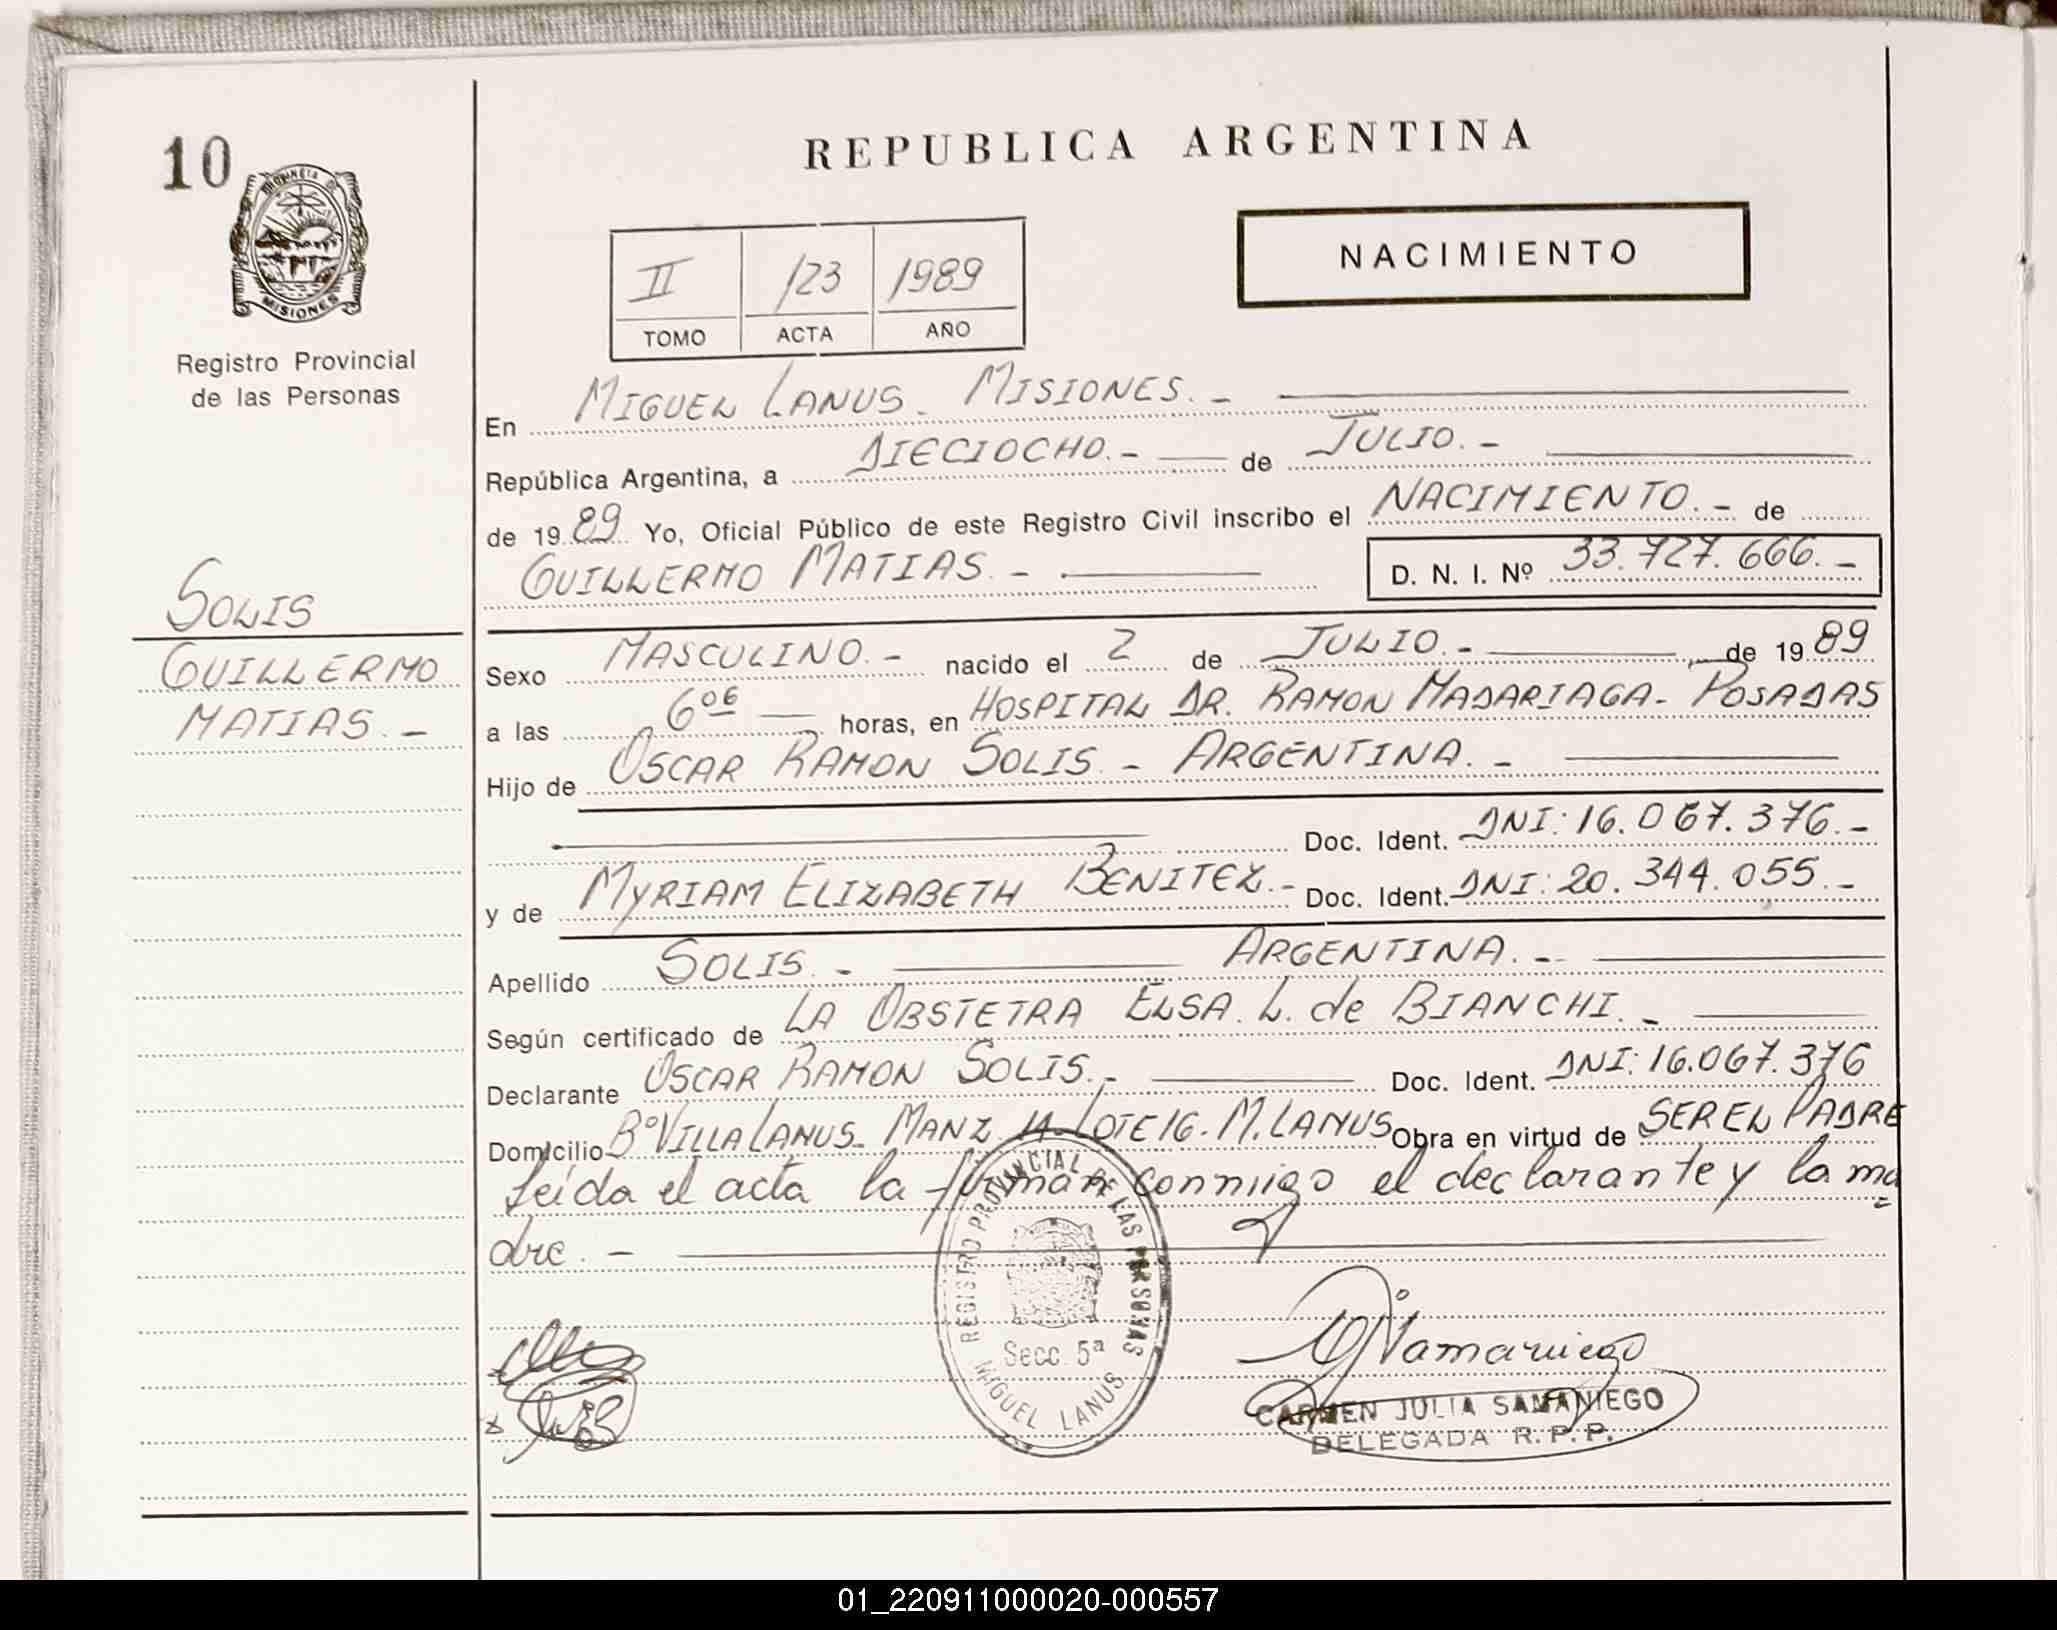 10
PROVINCIA DE
MISIONES
Registro Provincial
de las Personas
SOLIS
GUILLERMO
MATIAS. -
REPUBLICA ARGENTINA
NACIMIENTO
II 123 1989
TOMO ACTA AÑO
En MIGUEL LANUS. MISIONES. -
República Argentina, a DIECIOCHO. - de JULIO. -
de 1989 Yo, Oficial Público de este Registro Civil inscribo el NACIMIENTO. - de
GUILLERMO MATIAS. - D. N. I. Nº 33.727.666. -
Sexo MASCULINO. - nacido el 2 de JULIO. - de 1989
a las 6 06 horas, en HOSPITAL DR. RAMON MADARIAGA - POSADAS
Hijo de OSCAR RAMON SOLIS. - ARGENTINA. -
Doc. Ident. DNI: 16.067.376. -
y de MYRIAM ELIZABETH BENITEZ. - Doc. Ident. DNI: 20.344.055. -
Apellido SOLIS. - ARGENTINA. -
Según certificado de LA OBSTETRA ELSA. L. de BIANCHI. -
Declarante OSCAR RAMON SOLIS. - Doc. Ident. DNI: 16.067.376
Domicilio Bº VILLA LANUS - MANZ. 14 - LOTE 16. M. LANUS Obra en virtud de SER EL PADRE
Leída el acta la firman conmigo el declarante y la ma
dre. -
REGISTRO PROVINCIAL DE LAS PERSONAS
Secc. 5ª
MIGUEL LANUS
CARMEN JULIA SAMANIEGO
DELEGADA R. P. P.
01_220911000020-000557